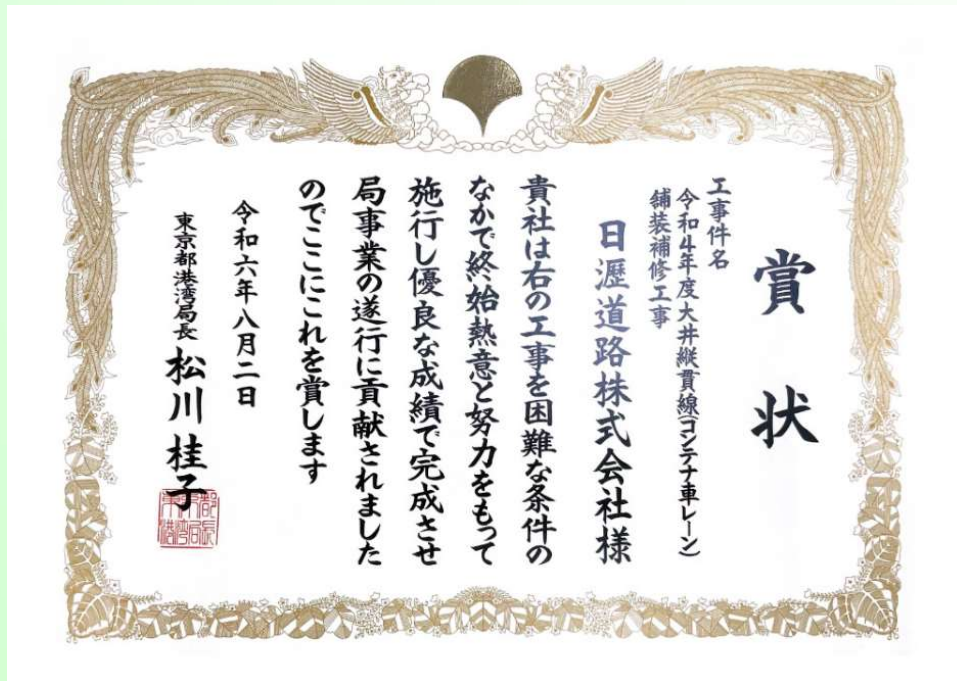 賞状
工事件名
令和4年度大井縦貫線(コンテナ車レーン)
舗装補修工事
日瀝道路株式会社様
貴社は右の工事を困難な条件の
なかで終始熱意と努力をもって
施行し優良な成績で完成させ
局事業の遂行に貢献されました
のでここにこれを賞します
令和六年八月二日
東京都港湾局長 松川桂子